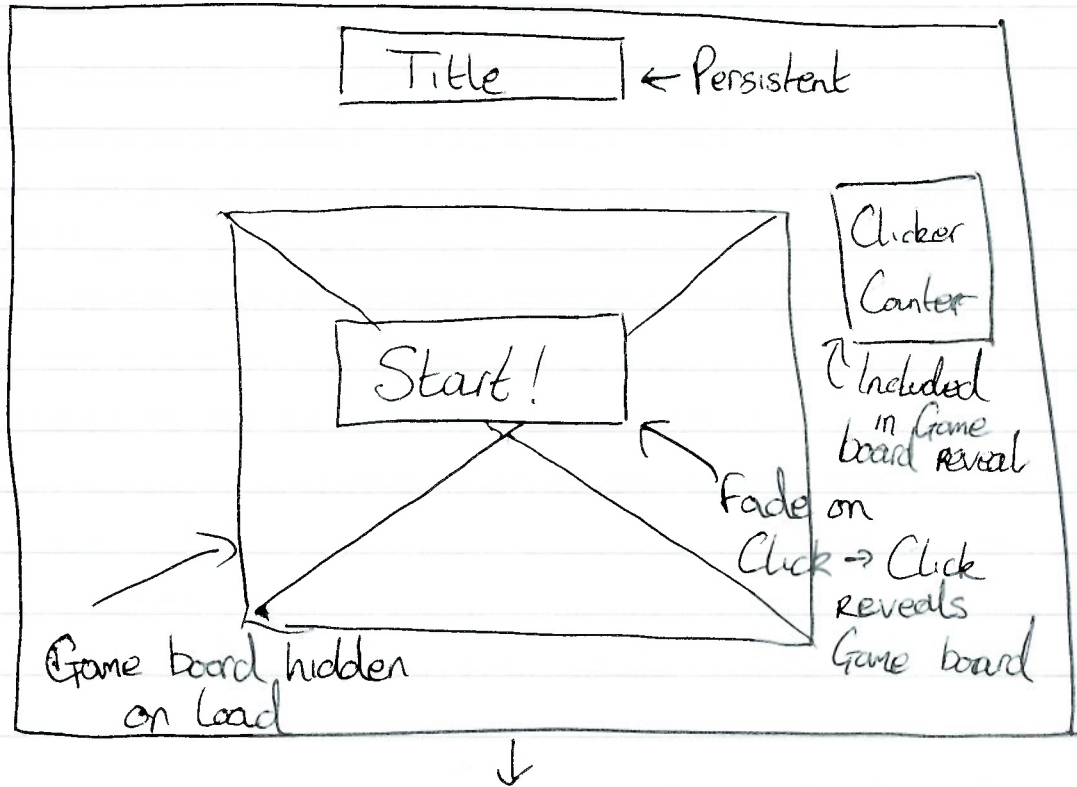 Title
← Persistent
Clicker
Counter
Start!
Included
in Game
board REVEAL
Fade on
Click → Click
REVEALS
Game board
Game board hidden
on load